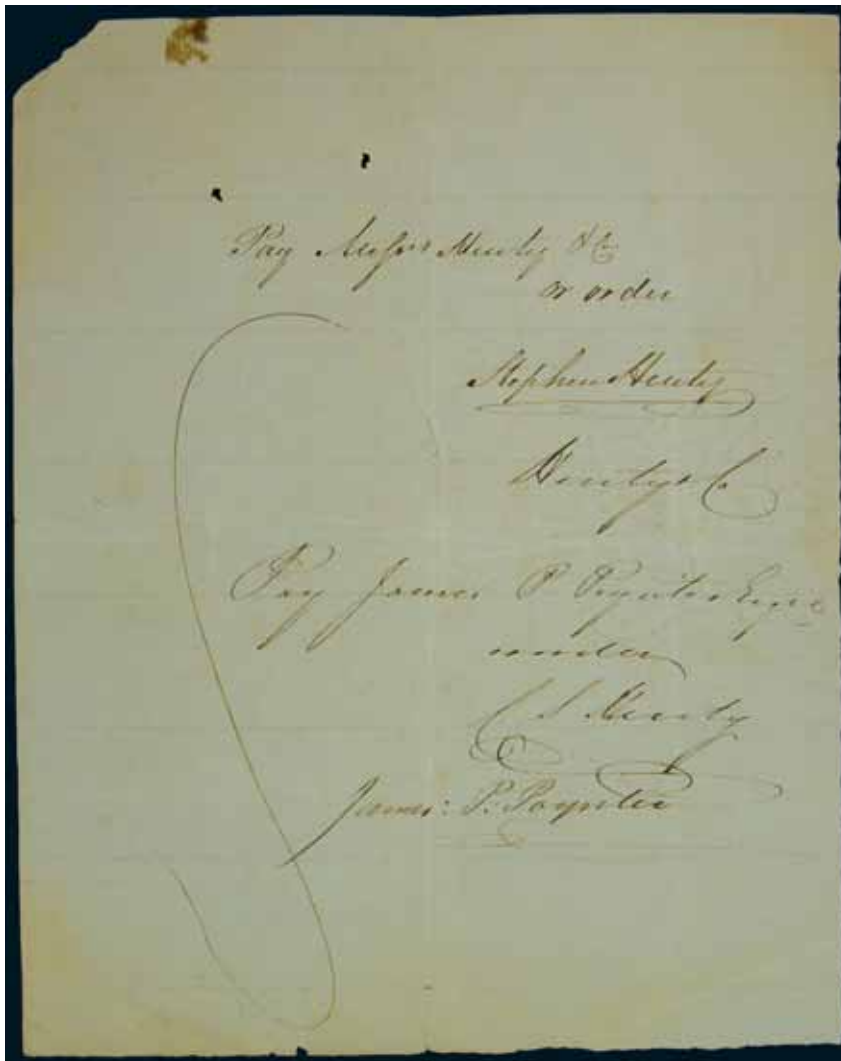 Pay Messrs Henty & Co
or order
Stephen Henty
Henty & Co
Pay James P Poynter Esqre
or order
C S Henty
James: P: Poynter